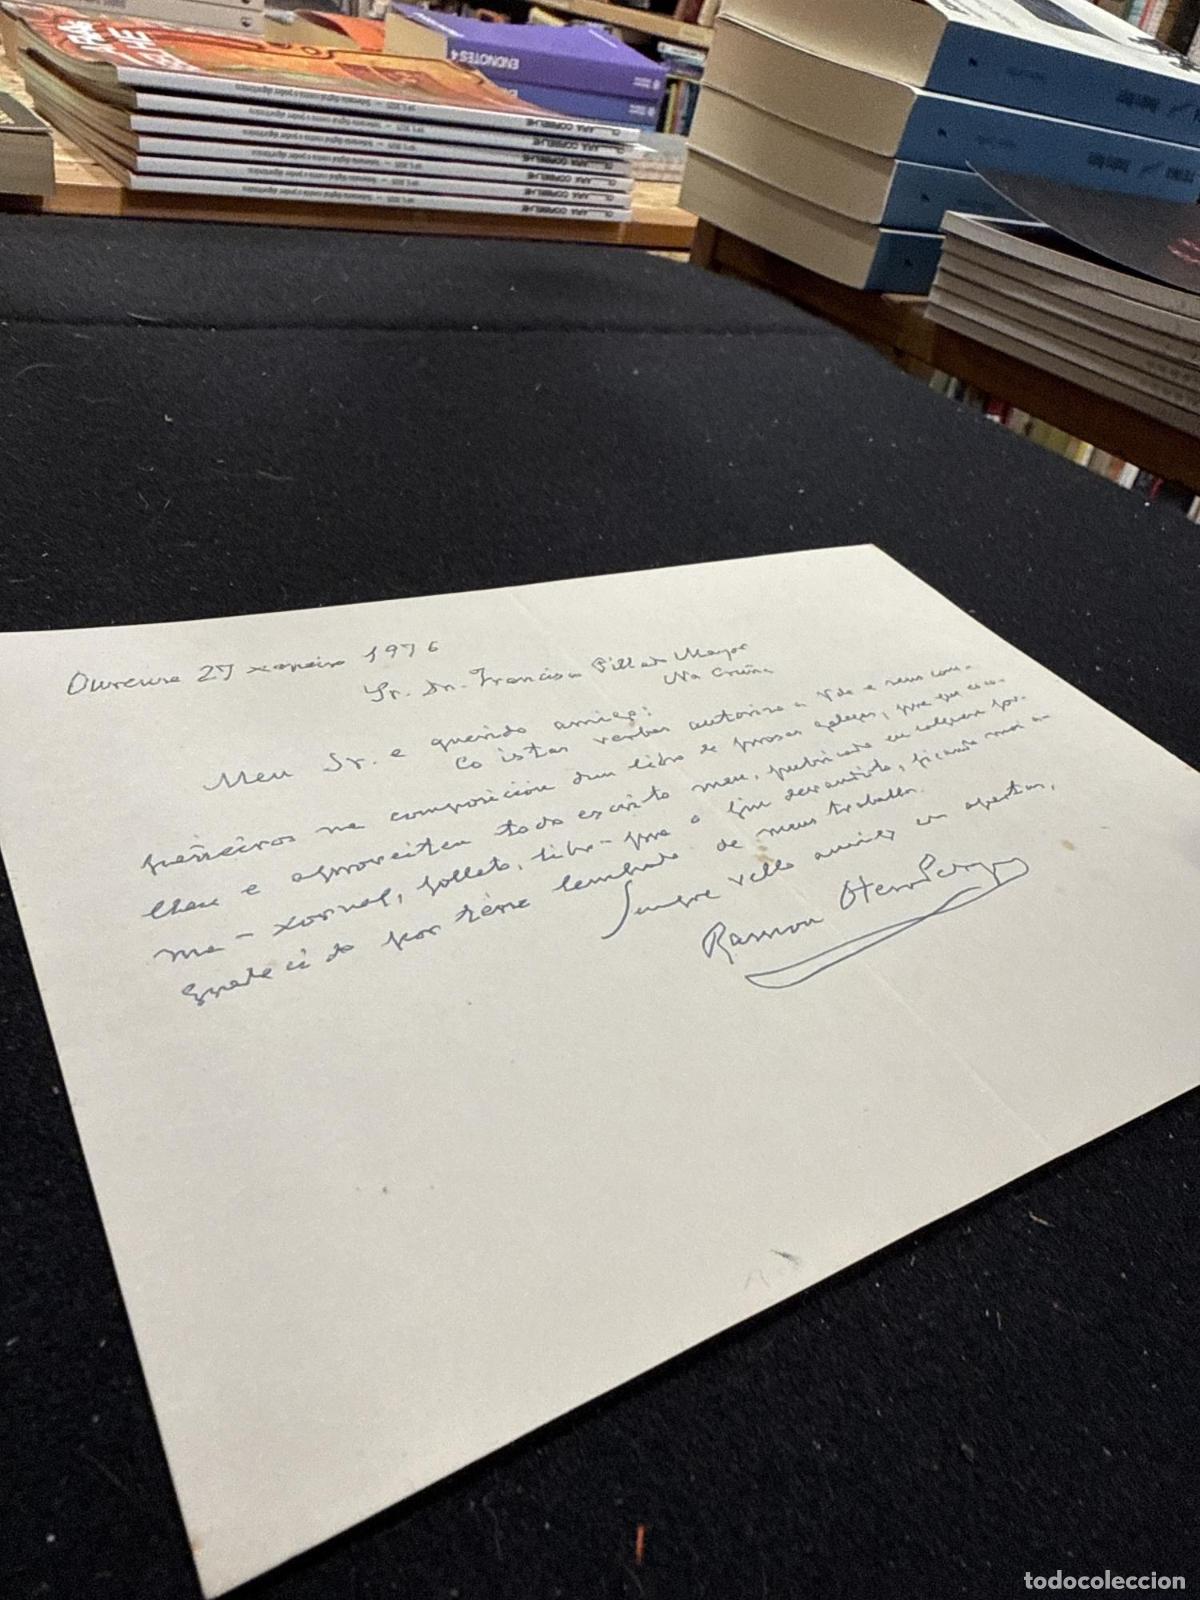 ENDNOTES 4
Ourense 27 xaneiro 1976
Sr. Dn. Francisco Pillado Mayor
Na Cruña
Meu Sr. e querido amigo:
Co istas verbas autorizo a Vde e seus com-
pañeiros na composición dun libro de prosas galegas, pra que esco-
llan e aproveiten todo escrito meu, publicado en calquera for-
ma - xornal, folleto, libro - pra o fin devandito, ficando moi a-
gradecido por térse lembrado de meus traballos.
Sempre vello amigo
Ramón Otero Pedrayo
todocoleccion